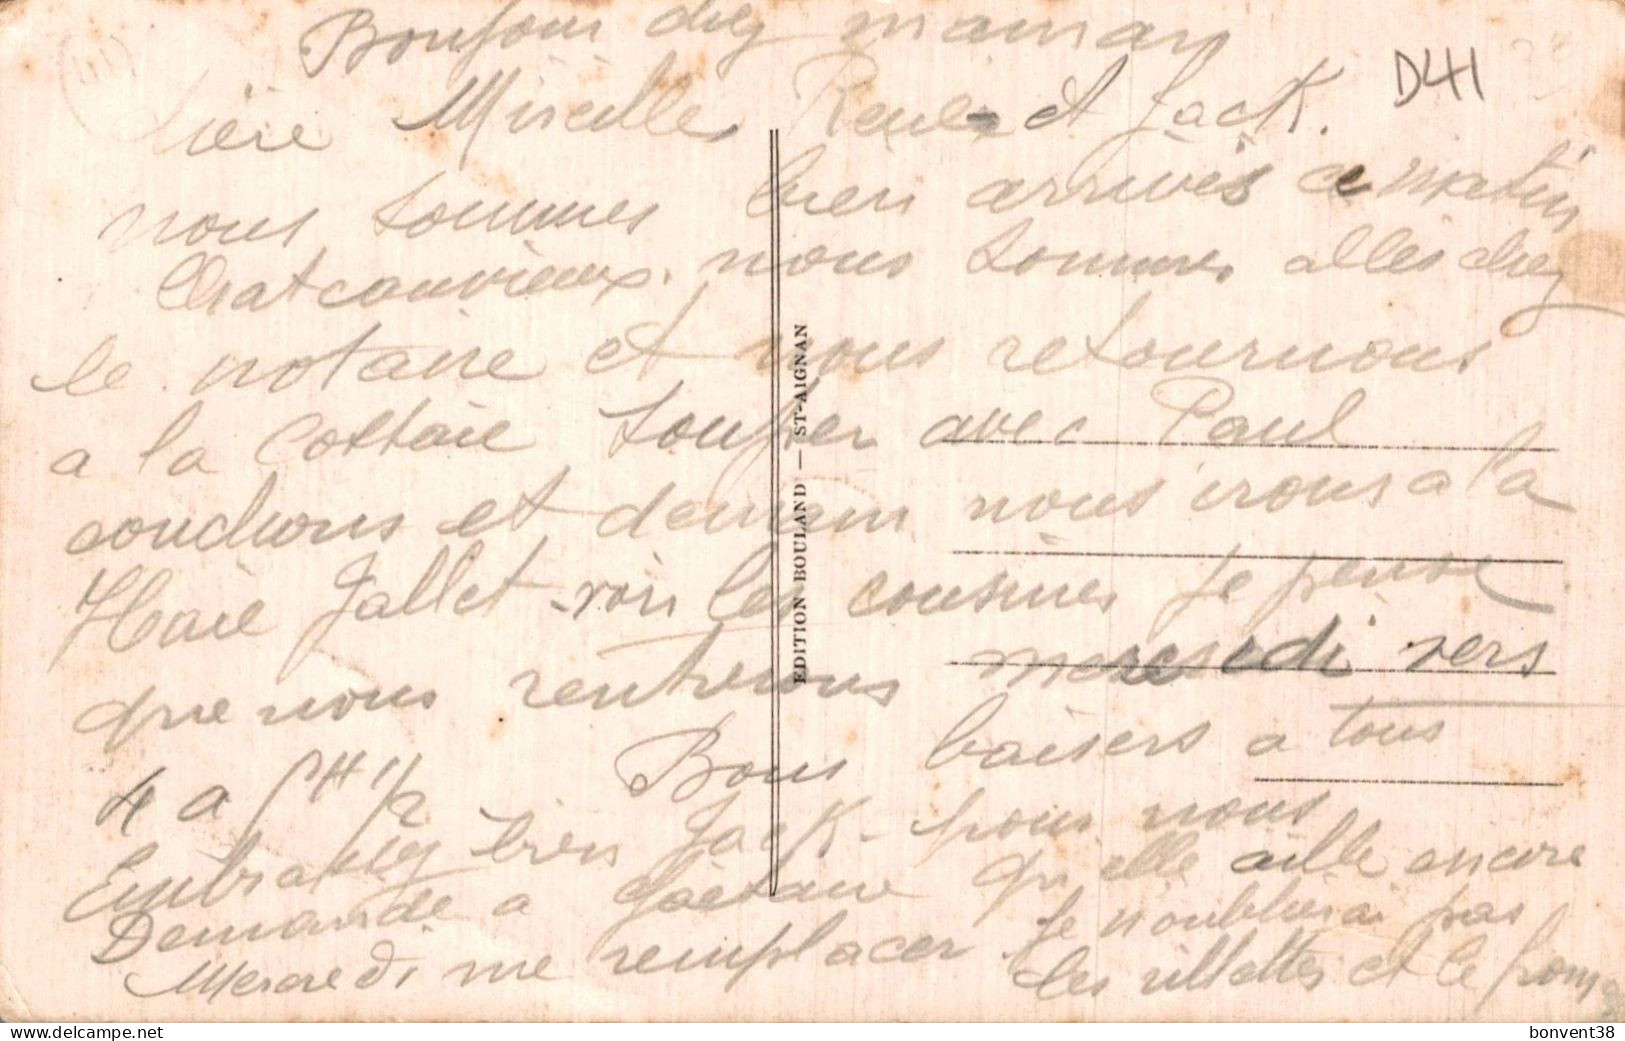 Bonjour chez maman
D41
Mireille René et Jack.
nous sommes bien arrivés ce matin
Chateauvieux. nous sommes allés chez
le notaire et nous retournons
a la souper avec Paul
couchons et demain nous irons a la
Haie Jallet voir les cousines je pense
que nous rentrerons mercredi vers
4 a 5H 1/2 Bons baisers a tous
Embrassez bien Jack pour nous
Demande a Gaetane qu'elle aille encore
Mercredi me remplacer je n'oublierai pas
les rillettes et le
EDITION BOULAND — ST-AIGNAN
bonvent38